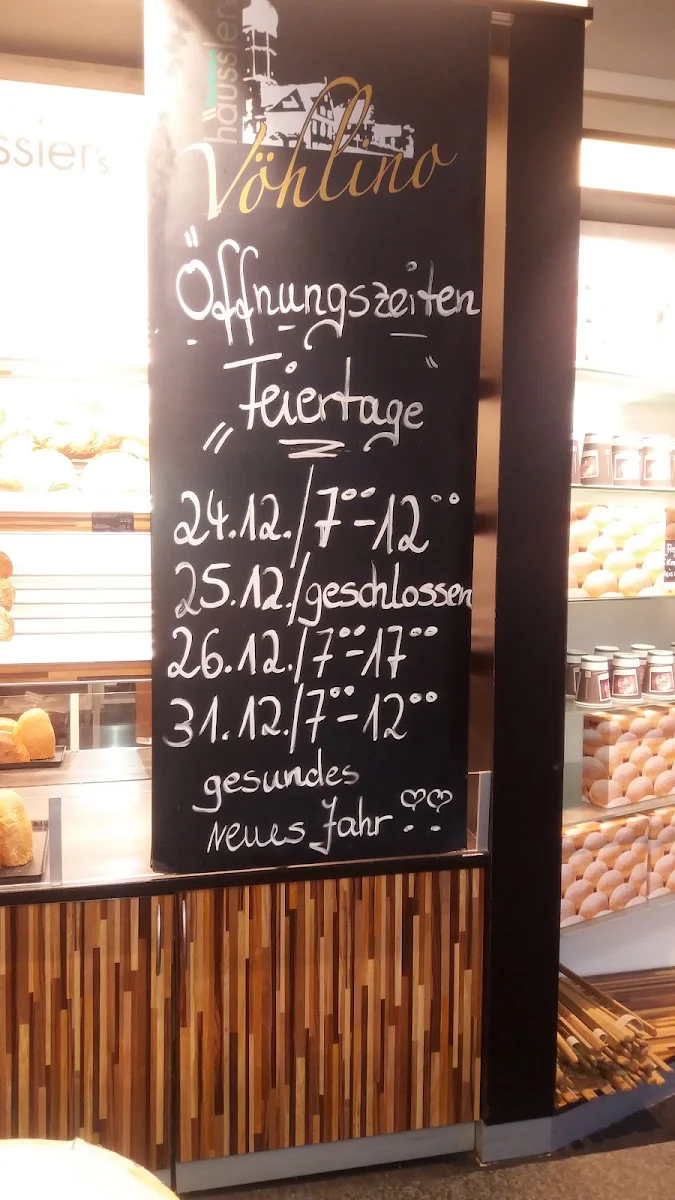 häussler
ssier's
Vöhlino
"Öffnungszeiten
Feiertage"
24.12./7°°-12°°
25.12./geschlossen
26.12./7°°-17°°
31.12./7°°-12°°
gesundes
neues Jahr